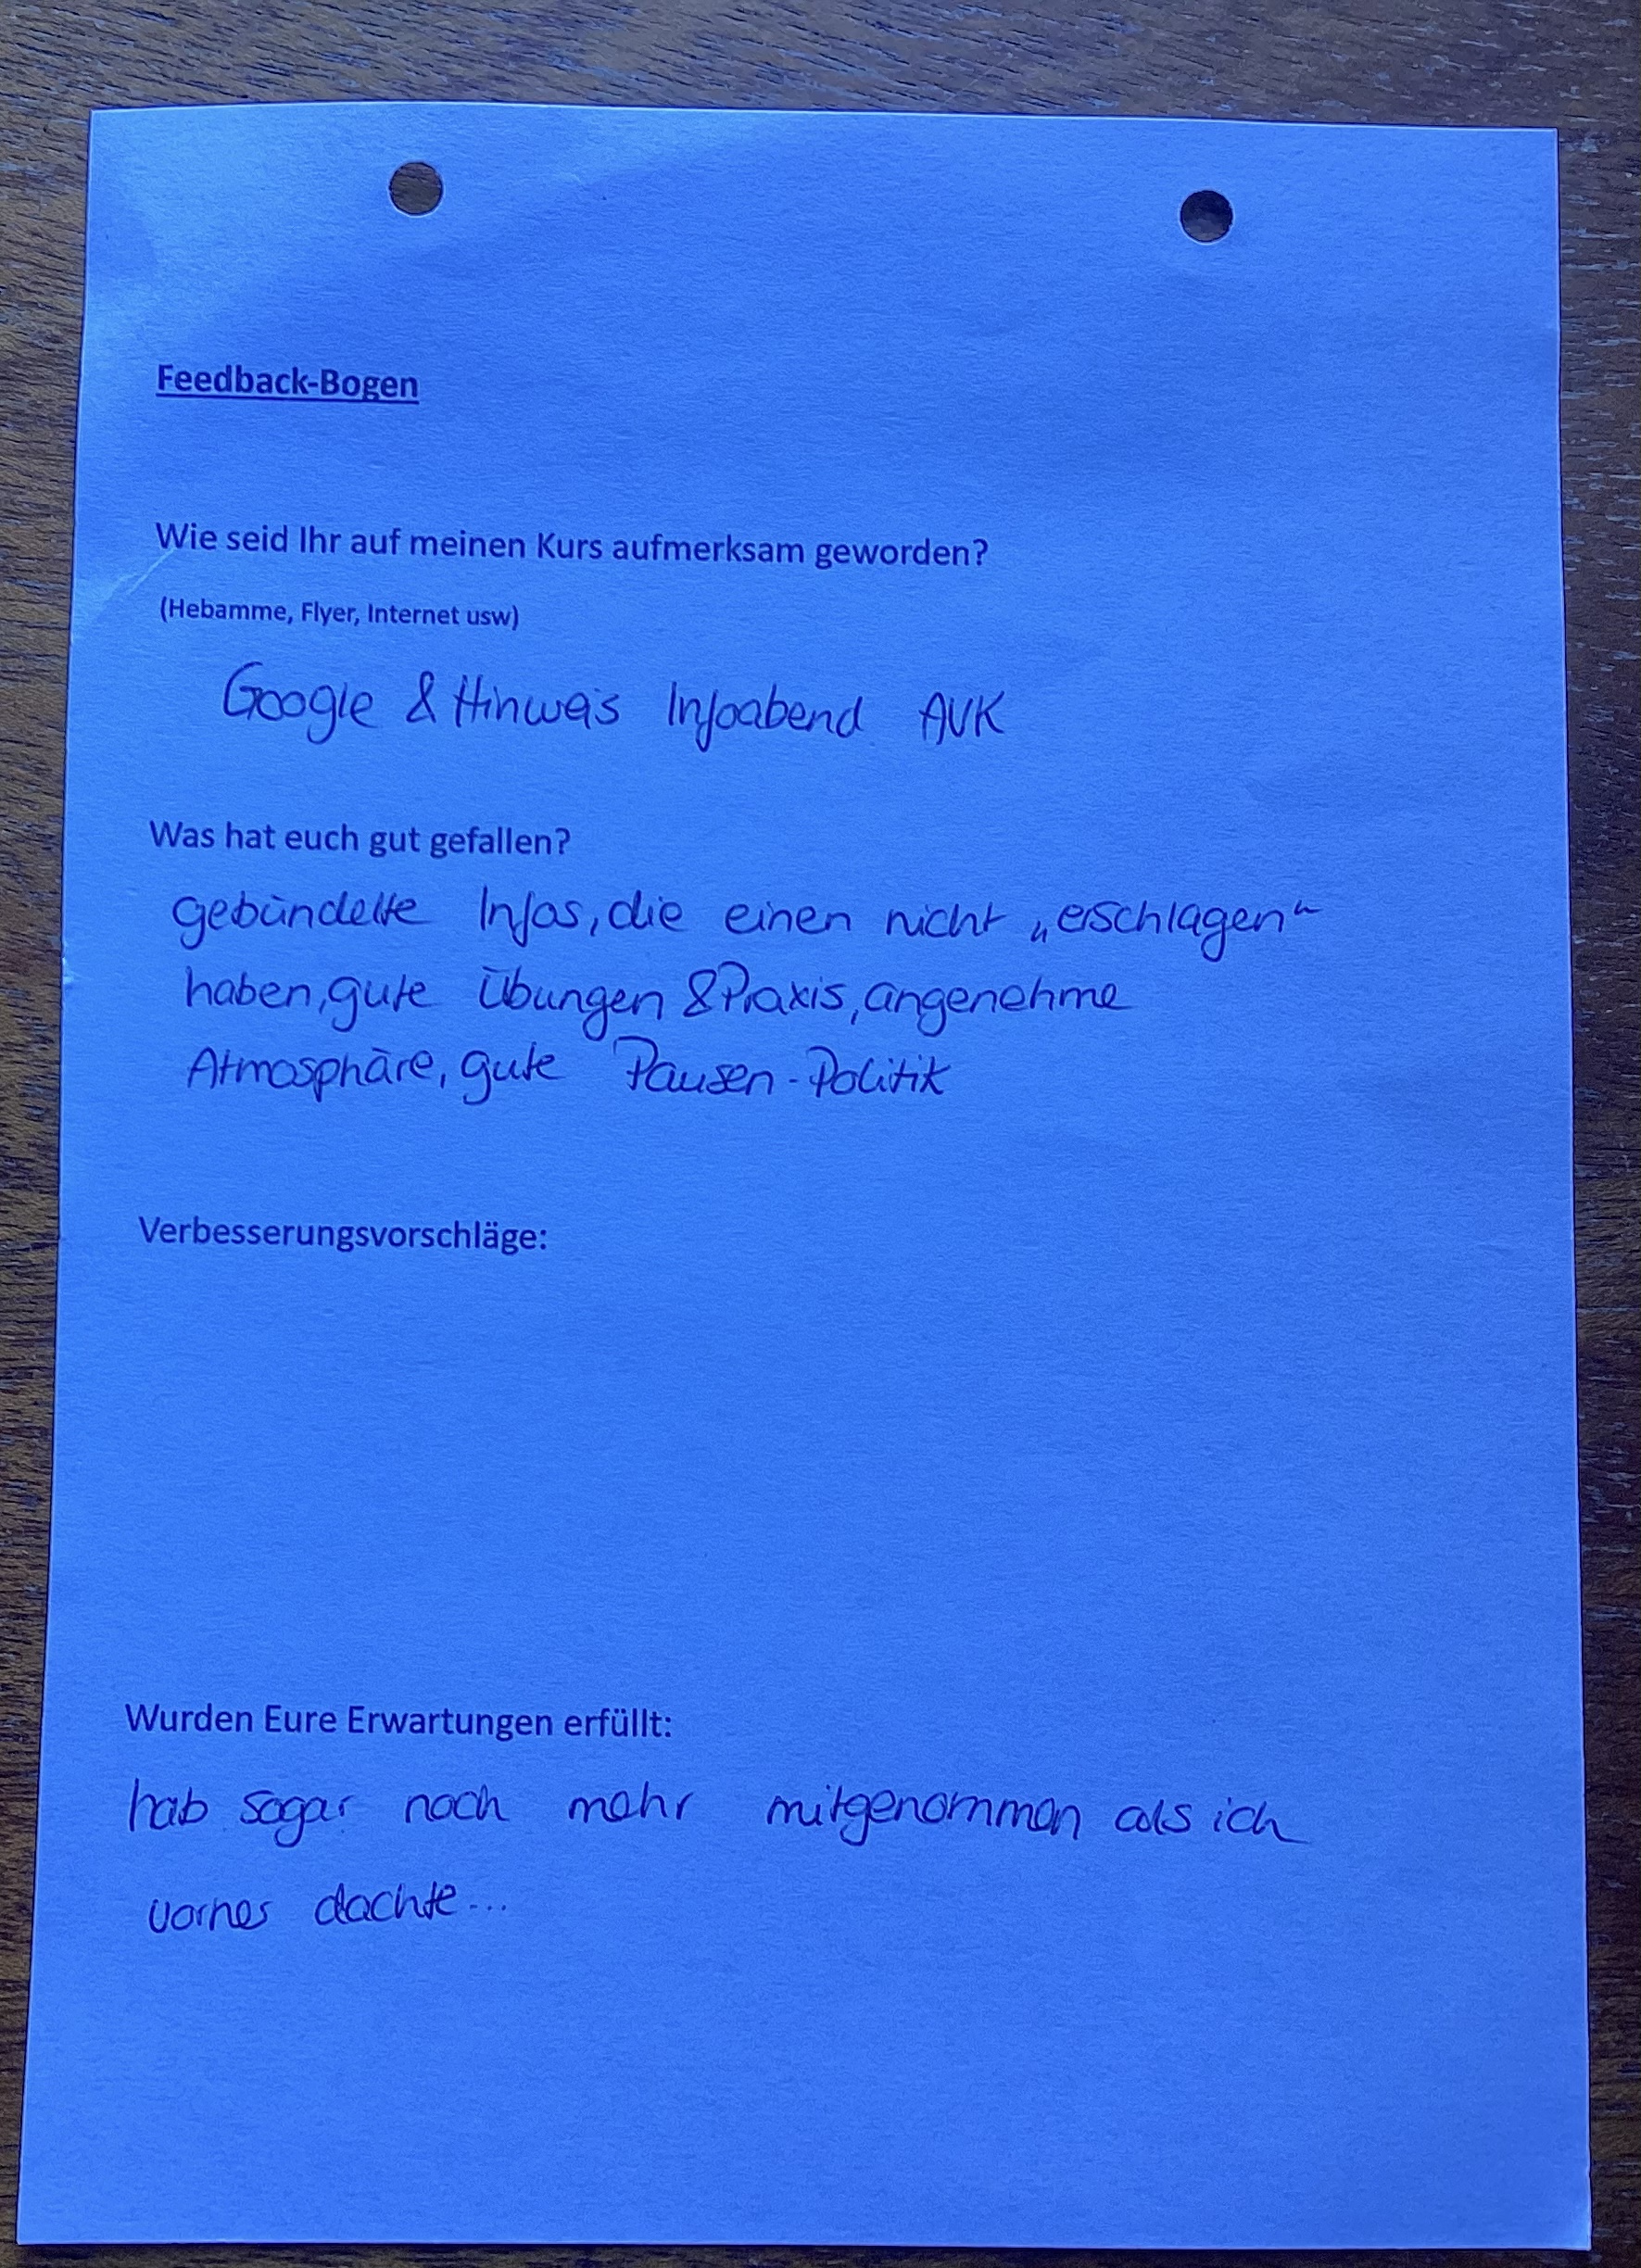 Feedback-Bogen
Wie seid Ihr auf meinen Kurs aufmerksam geworden?
(Hebamme, Flyer, Internet usw)
Google & Hinweis Infoabend AVK
Was hat euch gut gefallen?
gebündelte Infos, die einen nicht „erschlagen“
haben, gute Übungen & Praxis, angenehme
Atmosphäre, gute Pausen-Politik
Verbesserungsvorschläge:
Wurden Eure Erwartungen erfüllt:
hab sogar noch mehr mitgenommen als ich
vorher dachte...